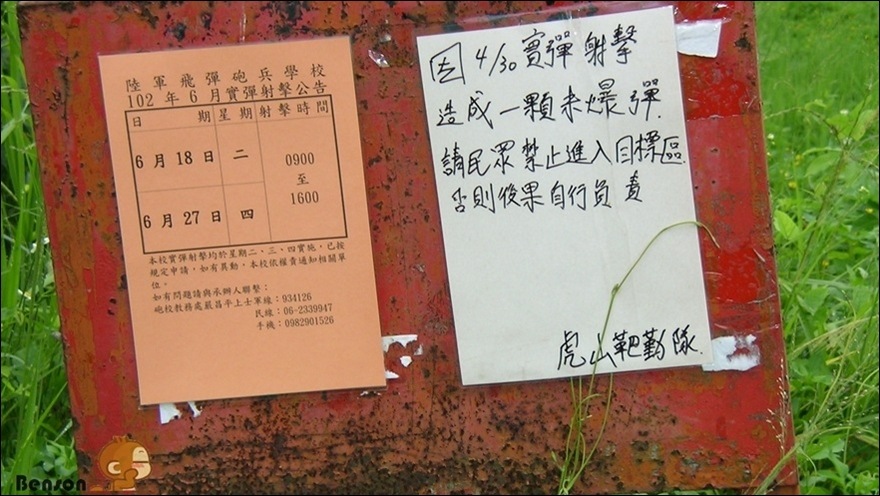 陸軍飛彈砲兵學校
102 年 6 月實彈射擊公告
日 期 星 期 射擊時間
6 月 18 日 二 0900
至
1600
6 月 27 日 四
本校實彈射擊均於星期二、三、四實施，已按
規定申請，如有異動，本校依權責通知相關單
位。
如有問題請與承辦人聯繫：
砲校教務處嚴昌平上士軍線：934126
民線：06-2339947
手機：0982901526
因 4/30 實彈射擊
造成一顆未爆彈.
請民眾禁止進入目標區.
否則後果自行負責
虎山靶勤隊.
Benson